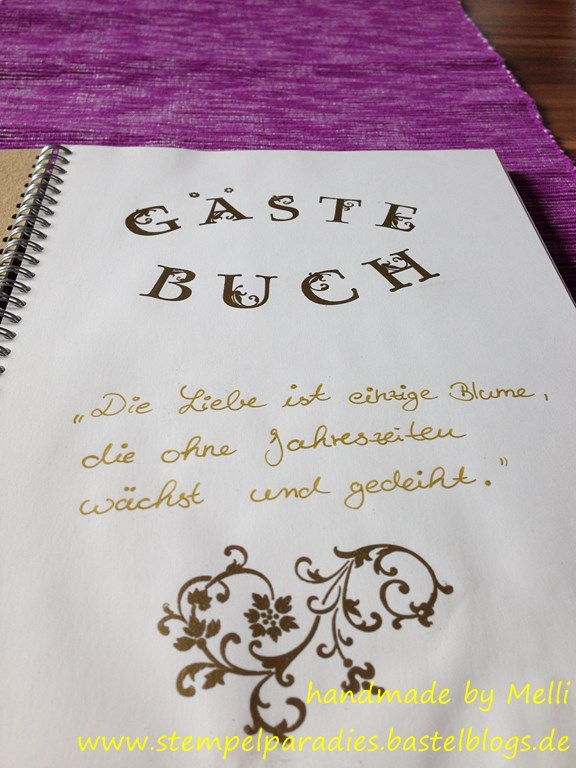 GÄSTE
BUCH
„Die Liebe ist einzige Blume,
die ohne Jahreszeiten
wächst und gedeiht."
handmade by Melli
www.stempelparadies.bastelblogs.de